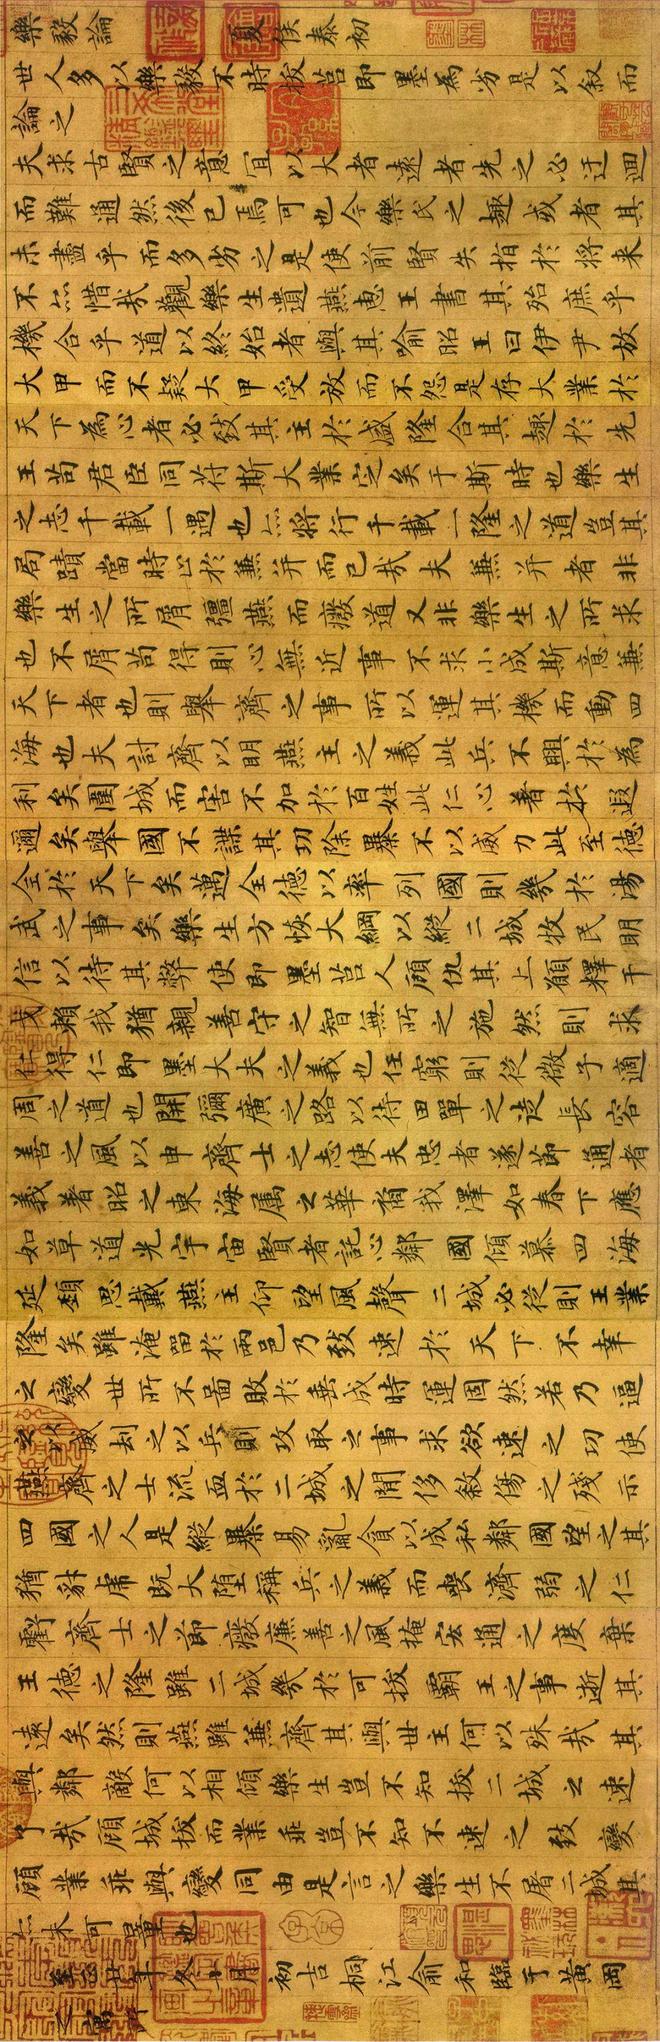 樂毅論 夏侯泰初
世人多以樂毅不時拔莒即墨為劣是以敘而
論之
夫求古賢之意宜以大者遠者先之必迂迴
而難通然後已焉可也今樂氏之趣或者其
未盡乎而多劣之是使前賢失指於將來
不亦惜哉觀樂生遺燕惠王書其殆庶乎
機合乎道以終始者與其喻昭王曰伊尹放
大甲而不疑大甲受放而不怨是存大業於
天下為心者必致其主於盛隆合其趣於先
王苟君臣同符斯大業定矣于斯時也樂生
之志千載一遇也亦將行千載一隆之道豈其
局蹟當時止於兼并而已哉夫兼并者非
樂生之所屑彊燕而癈道又非樂生之所求
也不屑苟得則心無近事不求小成斯意兼
天下者也則舉齊之事所以運其機而動四
海也夫討齊以明燕主之義此兵不興於為
利矣圍城而害不加於百姓此仁心著於遐
邇矣舉國不謀其功除暴不以威力此至德
全於天下矣邁全德以率列國則幾於湯
武之事矣樂生方恢大綱以縱二城牧民明
信以待其弊使即墨莒人顧仇其上願釋干
戈賴我猶親善守之智無所之施然則求
仁得仁即墨大夫之義也任窮則從微子適
周之道也開彌廣之路以待田單之徒長容
善之風以申齊士之志使夫忠者遂節通者
義著昭之東海屬之華裔我澤如春下應
如草道光宇宙賢者託心鄰國傾慕四海
延頸思戴燕主仰望風聲二城必從則王業
隆矣雖淹留於兩邑乃致速於天下不幸
之變世所不圖敗於垂成時運固然若乃逼
之以威劫之以兵則攻取之事求欲速之功使
燕齊之士流血於二城之間侈殺傷之殘示
四國之人是縱暴易亂貪以成私鄰國望之其
猶豺虎既大墮稱兵之義而喪濟弱之仁
虧齊士之節癈廉善之風掩宏通之度棄
王德之隆雖二城幾於可拔霸王之事逝其
遠矣然則燕雖兼齊其與世主何以殊哉其
與鄰敵何以相傾樂生豈不知拔二城之速
了哉顧城拔而業乖豈不知不速之致變
顧業乖與變同由是言之樂生不屠二城其
亦未可量也
冬十月初吉桐江俞和臨于黃岡